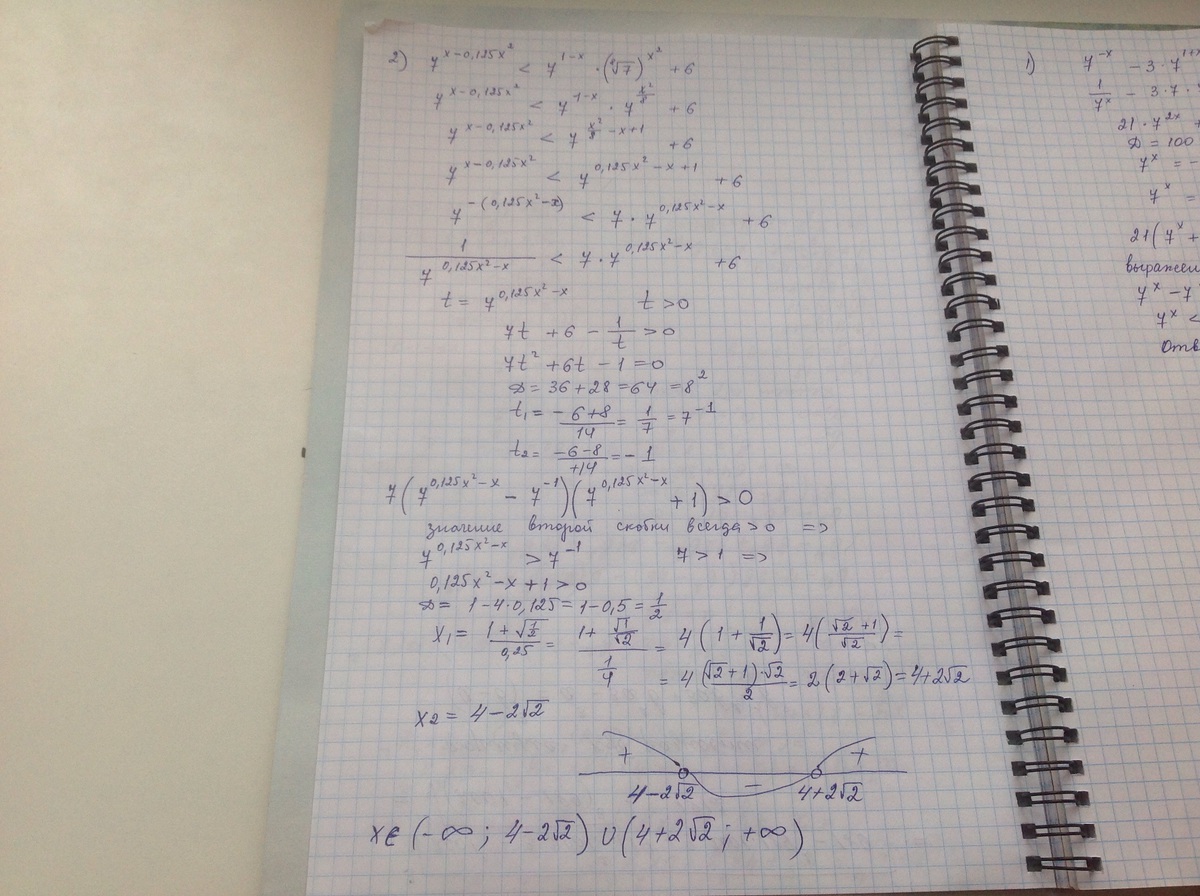 2) 7^(x-0,125x²) < 7^(1-x) · (⁸√7)^(x²) + 6
7^(x-0,125x²) < 7^(1-x) · 7^(x²/8) + 6
7^(x-0,125x²) < 7^(x²/8 - x + 1) + 6
7^(x-0,125x²) < 7^(0,125x² - x + 1) + 6
7^(-(0,125x²-x)) < 7 · 7^(0,125x²-x) + 6
1/7^(0,125x²-x) < 7 · 7^(0,125x²-x) + 6
t = 7^(0,125x²-x) t > 0
7t + 6 - 1/t > 0
7t² + 6t - 1 = 0
D = 36 + 28 = 64 = 8²
t₁ = (-6+8)/14 = 1/7 = 7^(-1)
t₂ = (-6-8)/+14 = -1
7(7^(0,125x²-x) - 7^(-1))(7^(0,125x²-x) + 1) > 0
значение второй скобки всегда > 0 =>
7^(0,125x²-x) > 7^(-1) 7 > 1 =>
0,125x² - x + 1 > 0
D = 1 - 4·0,125 = 1 - 0,5 = 1/2
x₁ = (1+√(1/2))/0,25 = (1+√1/√2)/(1/4) = 4(1 + 1/√2) = 4((√2+1)/√2) =
= 4 (√2+1)·√2/2 = 2(2+√2) = 4+2√2
x₂ = 4-2√2
+ - +
4-2√2 4+2√2
x ∈ (-∞; 4-2√2) ∪ (4+2√2; +∞)
1) 7^(-x) - 3 · 7^(1+
1/7^x - 3 · 7 ·
21 · 7^(2x) +
D = 100
7^x = -
7^x =
21(7^x +
выражен
7^x - 7
7^x <
Отв